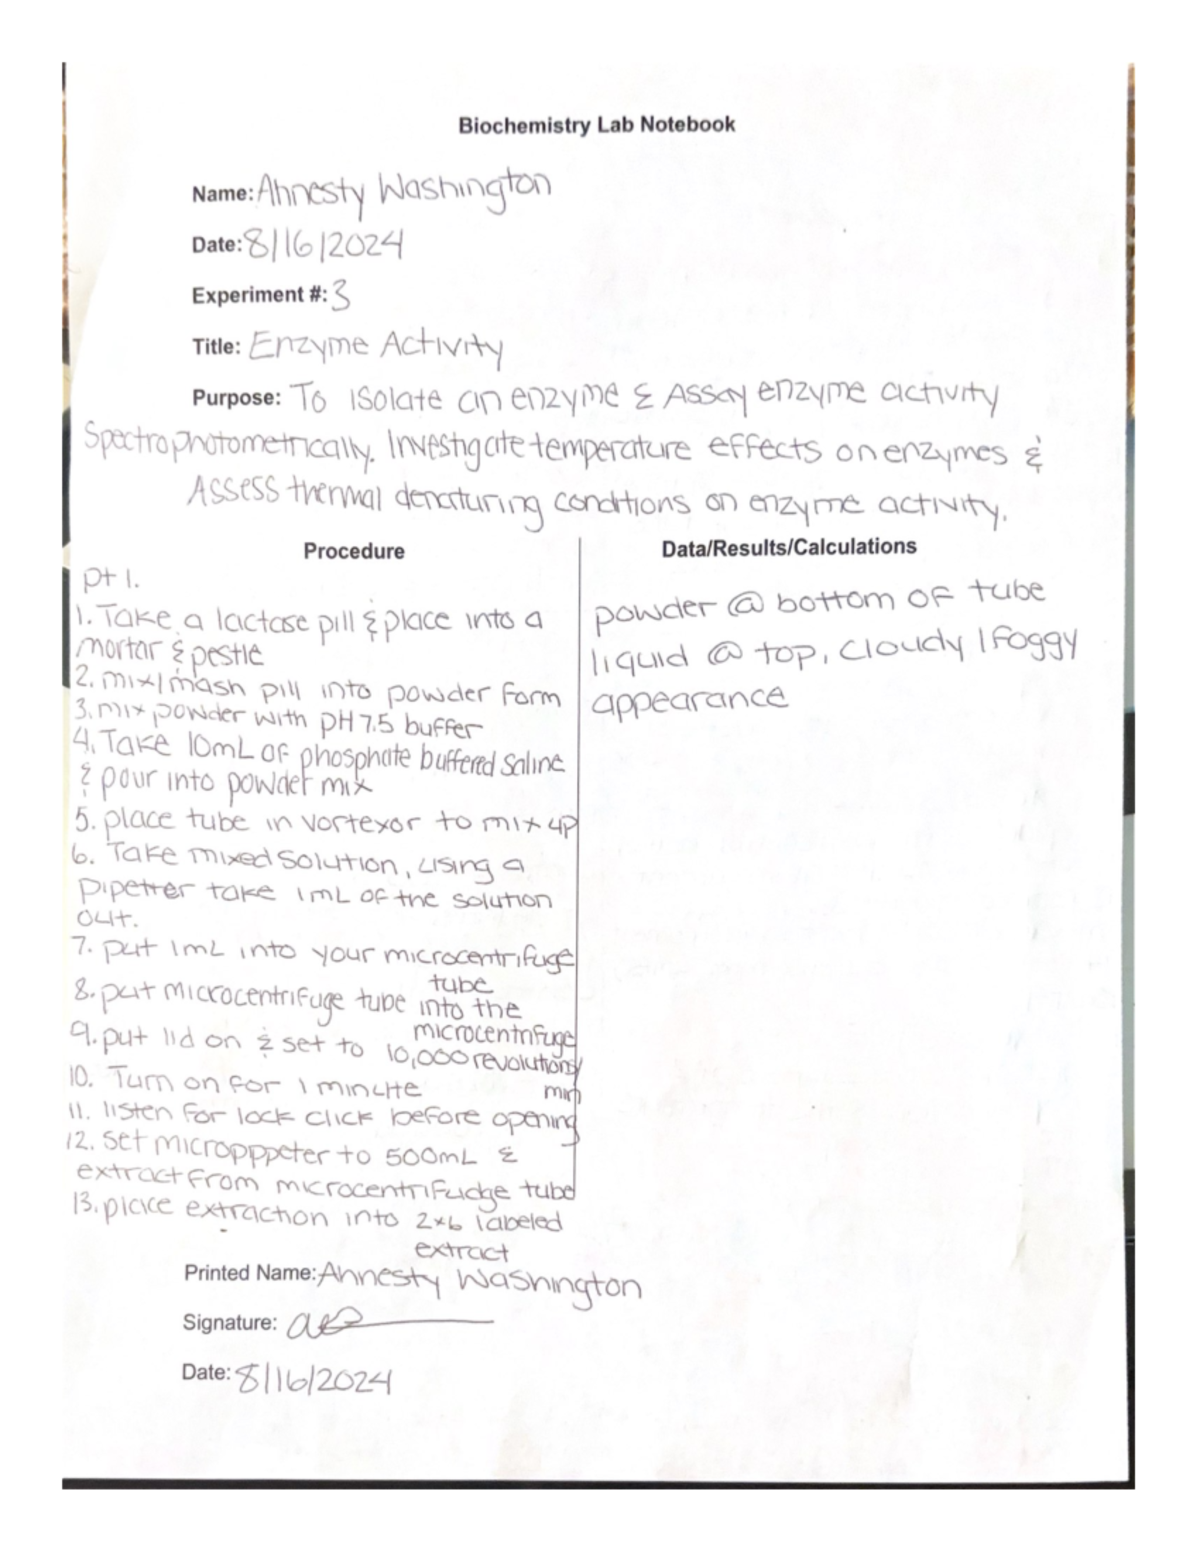 Biochemistry Lab Notebook
Name: Ahnesty Washington
Date: 8/16/2024
Experiment #: 3
Title: Enzyme Activity
Purpose: To isolate an enzyme & Assay enzyme activity
Spectrophotometrically. Investigate temperature effects on enzymes &
Assess thermal denaturing conditions on enzyme activity.
Procedure
pt 1.
1. Take a lactase pill & place into a
mortar & pestle
2. mix/mash pill into powder form
3. mix powder with pH 7.5 buffer
4. Take 10mL of phosphate buffered saline
& pour into powder mix
5. place tube in vortexor to mix up
6. Take mixed solution, using a
pipetter take 1mL of the solution
out.
7. put 1mL into your microcentrifuge
tube
8. put microcentrifuge tube into the
microcentrifuge
9. put lid on & set to 10,000 revolutions/
min
10. Turn on for 1 minute
11. listen for lock click before opening
12. set micropppeter to 500mL &
extract from microcentrifudge tube
13. place extraction into 2x6 labeled
extract
Data/Results/Calculations
powder @ bottom of tube
liquid @ top, cloudy/foggy
appearance
Printed Name: Ahnesty Washington
Signature:
Date: 8/16/2024